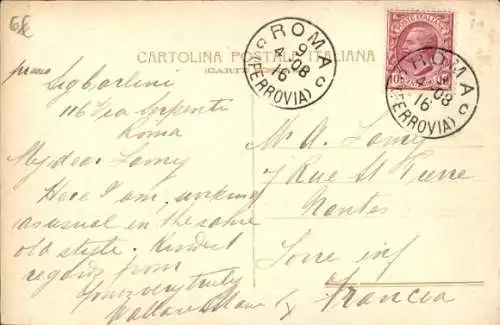 CARTOLINA POSTALE ITALIANA
(CARTE
ROMA
9
4·08
16
(FERROVIA)
POSTE ITALIANE
ROMA
4·08
16
(FERROVIA)
presso
Sig Barlini
116 Via Serpenti
Roma
My dear Lamy
Here I am, working
as usual in the same
old style. Kindest
regards from
yours very truly
Mr A. Lamy
7 Rue St Pierre
Nantes
Loire inf
Francia